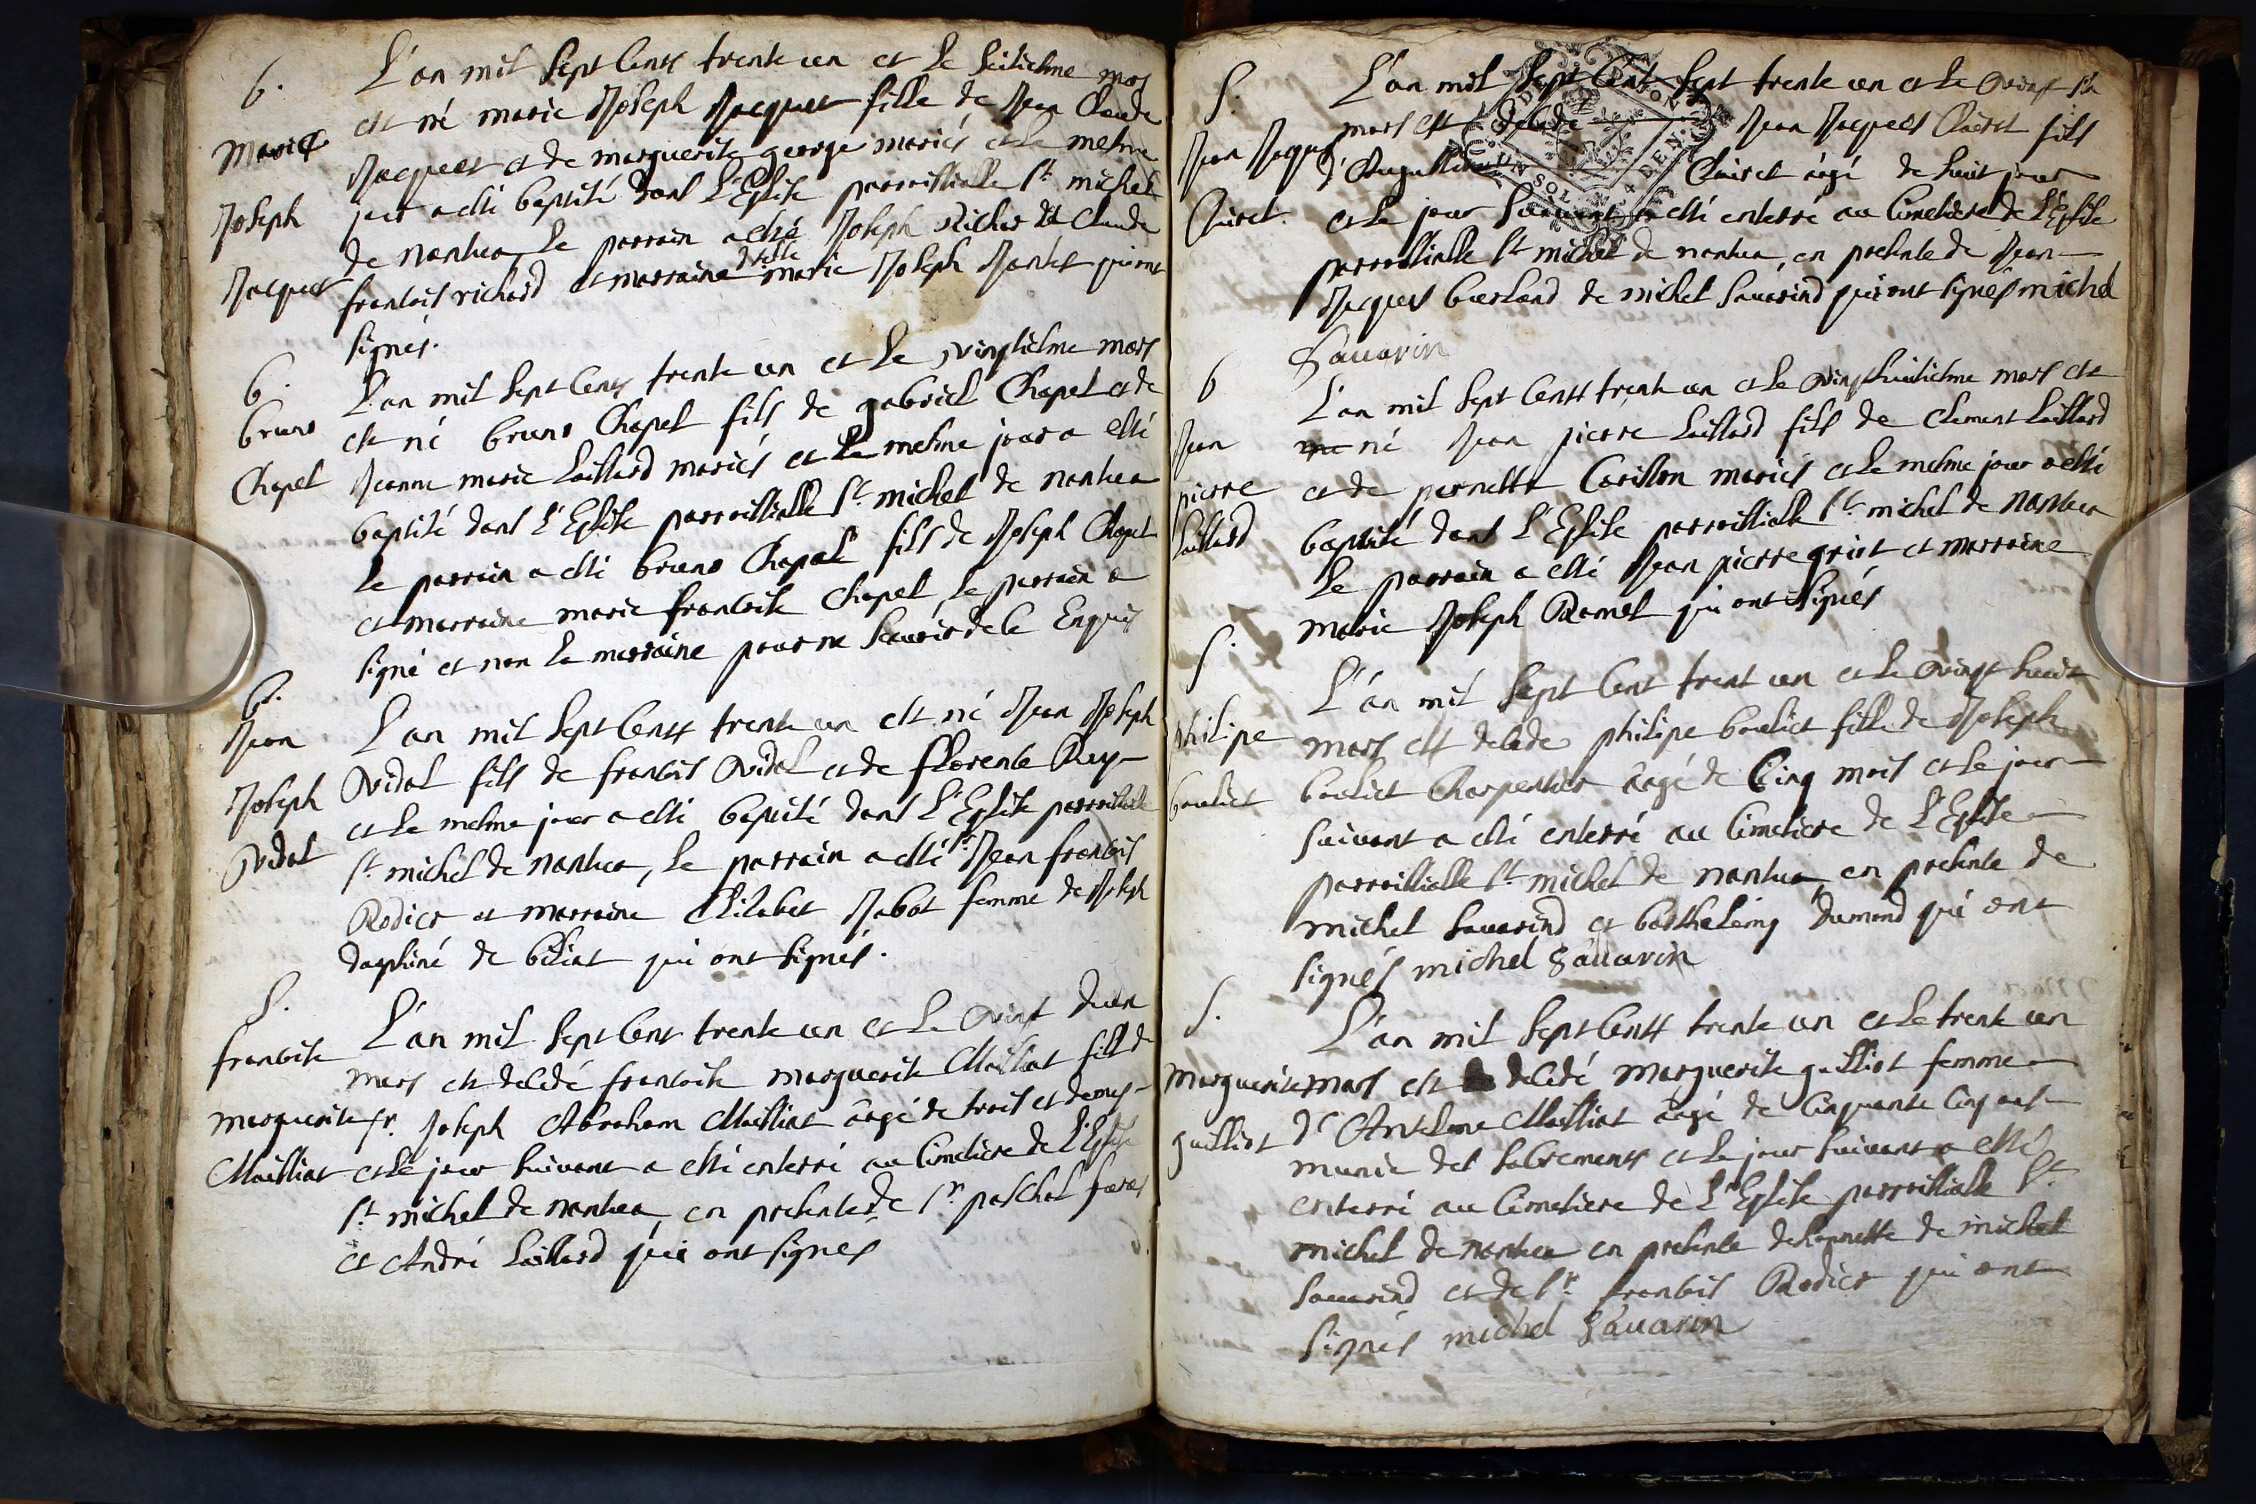 b.
Marie
Joseph
Jacquet
L'an mil sept cents trente un et le seitiesme mars
est né marie Joseph Jacquet fille de Jean Claude
Jacquet et de marguerite george mariés et le mesme
jour a esté baptisé dans l'Eglise parroissialle St michel
de nantua, le parrain a esté Joseph Nicher Claude
francois richard et marraine delle marie Joseph Jantet qui ont
signés.
b.
bruno
Chapel
L'an mil sept cents trente un et le vingtiesme mars
est né bruno Chapel fils de gabriel Chapel et de
Jeanne marie Laillard mariés et le mesme jour a esté
baptisé dans l'Eglise parroissialle St michel de nantua
le parrain a esté bruno Chapel fils de Joseph Chapel
et marraine marie francoise Chapel, le parrain a
signé et non la marraine pour ne scavoir de ce Enquis
b.
Jean
Joseph
Vidal
L'an mil sept cents trente un est né Jean Joseph
Vidal fils de francois Vidal et de florence Rey
et le mesme jour a esté baptisé dans l'Eglise parroissialle
St michel de nantua, le parrain a esté Sr Jean francois
Rodier et marraine Elisabet Jabot femme de Joseph
dauphiné de billiat qui ont signés.
S.
francoise
marguerite
Maissiat
L'an mil sept cents trente un et le vingt duen
mars est decedé francoise marguerite Maissiat fille de
sr. Joseph Abraham Maissiat âagé de trois et demy
et le jour suivant a esté enterré au Cimetiere de l'Eglise
St michel de nantua, en presence de sr paschal
et André Laillard qui ont signes
S.
Jean Jacques
Clairet.
L'an mil sept cent sept trente un et le vingt six
mars est decede Jean Jacques Clairet fils
d'Augustin Clairet âagé de huit jour
et le jour suivant a esté enterré au Cimetiere de l'Eglise
parroissialle St michel de nantua, en presence de Jean
Jacques Guerland de michel Sauarind qui ont signés michel
Sauarin
b
Jean
pierre
Laillard
L'an mil sept cents trente un et le vingthuitiesme mars est
né Jean pierre Laillard fils de Clement Laillard
et de pernette Carillon mariés et le mesme jour a esté
baptisé dans l'Eglise parroissialle St michel de nantua
le parrain a esté Jean pierre griot et marraine
marie Joseph Ramel qui ont signés
S.
philipe
bouliet
L'án mil sept cent trent un et le vingt huit
mars est decede philipe bouliet fille de Joseph
bouliet Charpentier âagé de Cinq mois et le jour
suivant a esté enterré au Cimetiere de l'Eglise
parroissialle St michel de nantua, en presence de
michel Sauarind et barthelemy dumond qui ont
signés michel Sauarin
S.
Marguerite
guilliot
L'an mil sept cents trente un et le trente un
mars est decedé marguerite guilliot femme
dr Anselme Maissiat âagé de Cinquante Cinq ans
munie des sacrements et le jour suivant a esté
enterré au Cimetiere de l'Eglise parroissialle St
michel de nantua en presence de michel
Sauarind et de sr. francois Rodier qui ont
signés michel Sauarin
UN SOL 4 DEN.